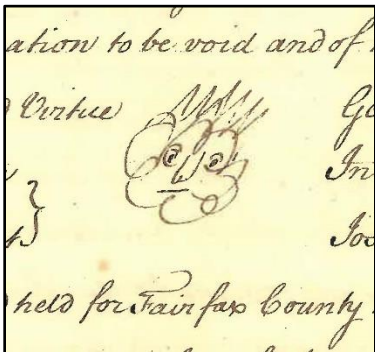 ation to be void and of
Virtue
In
held for Fairfax County